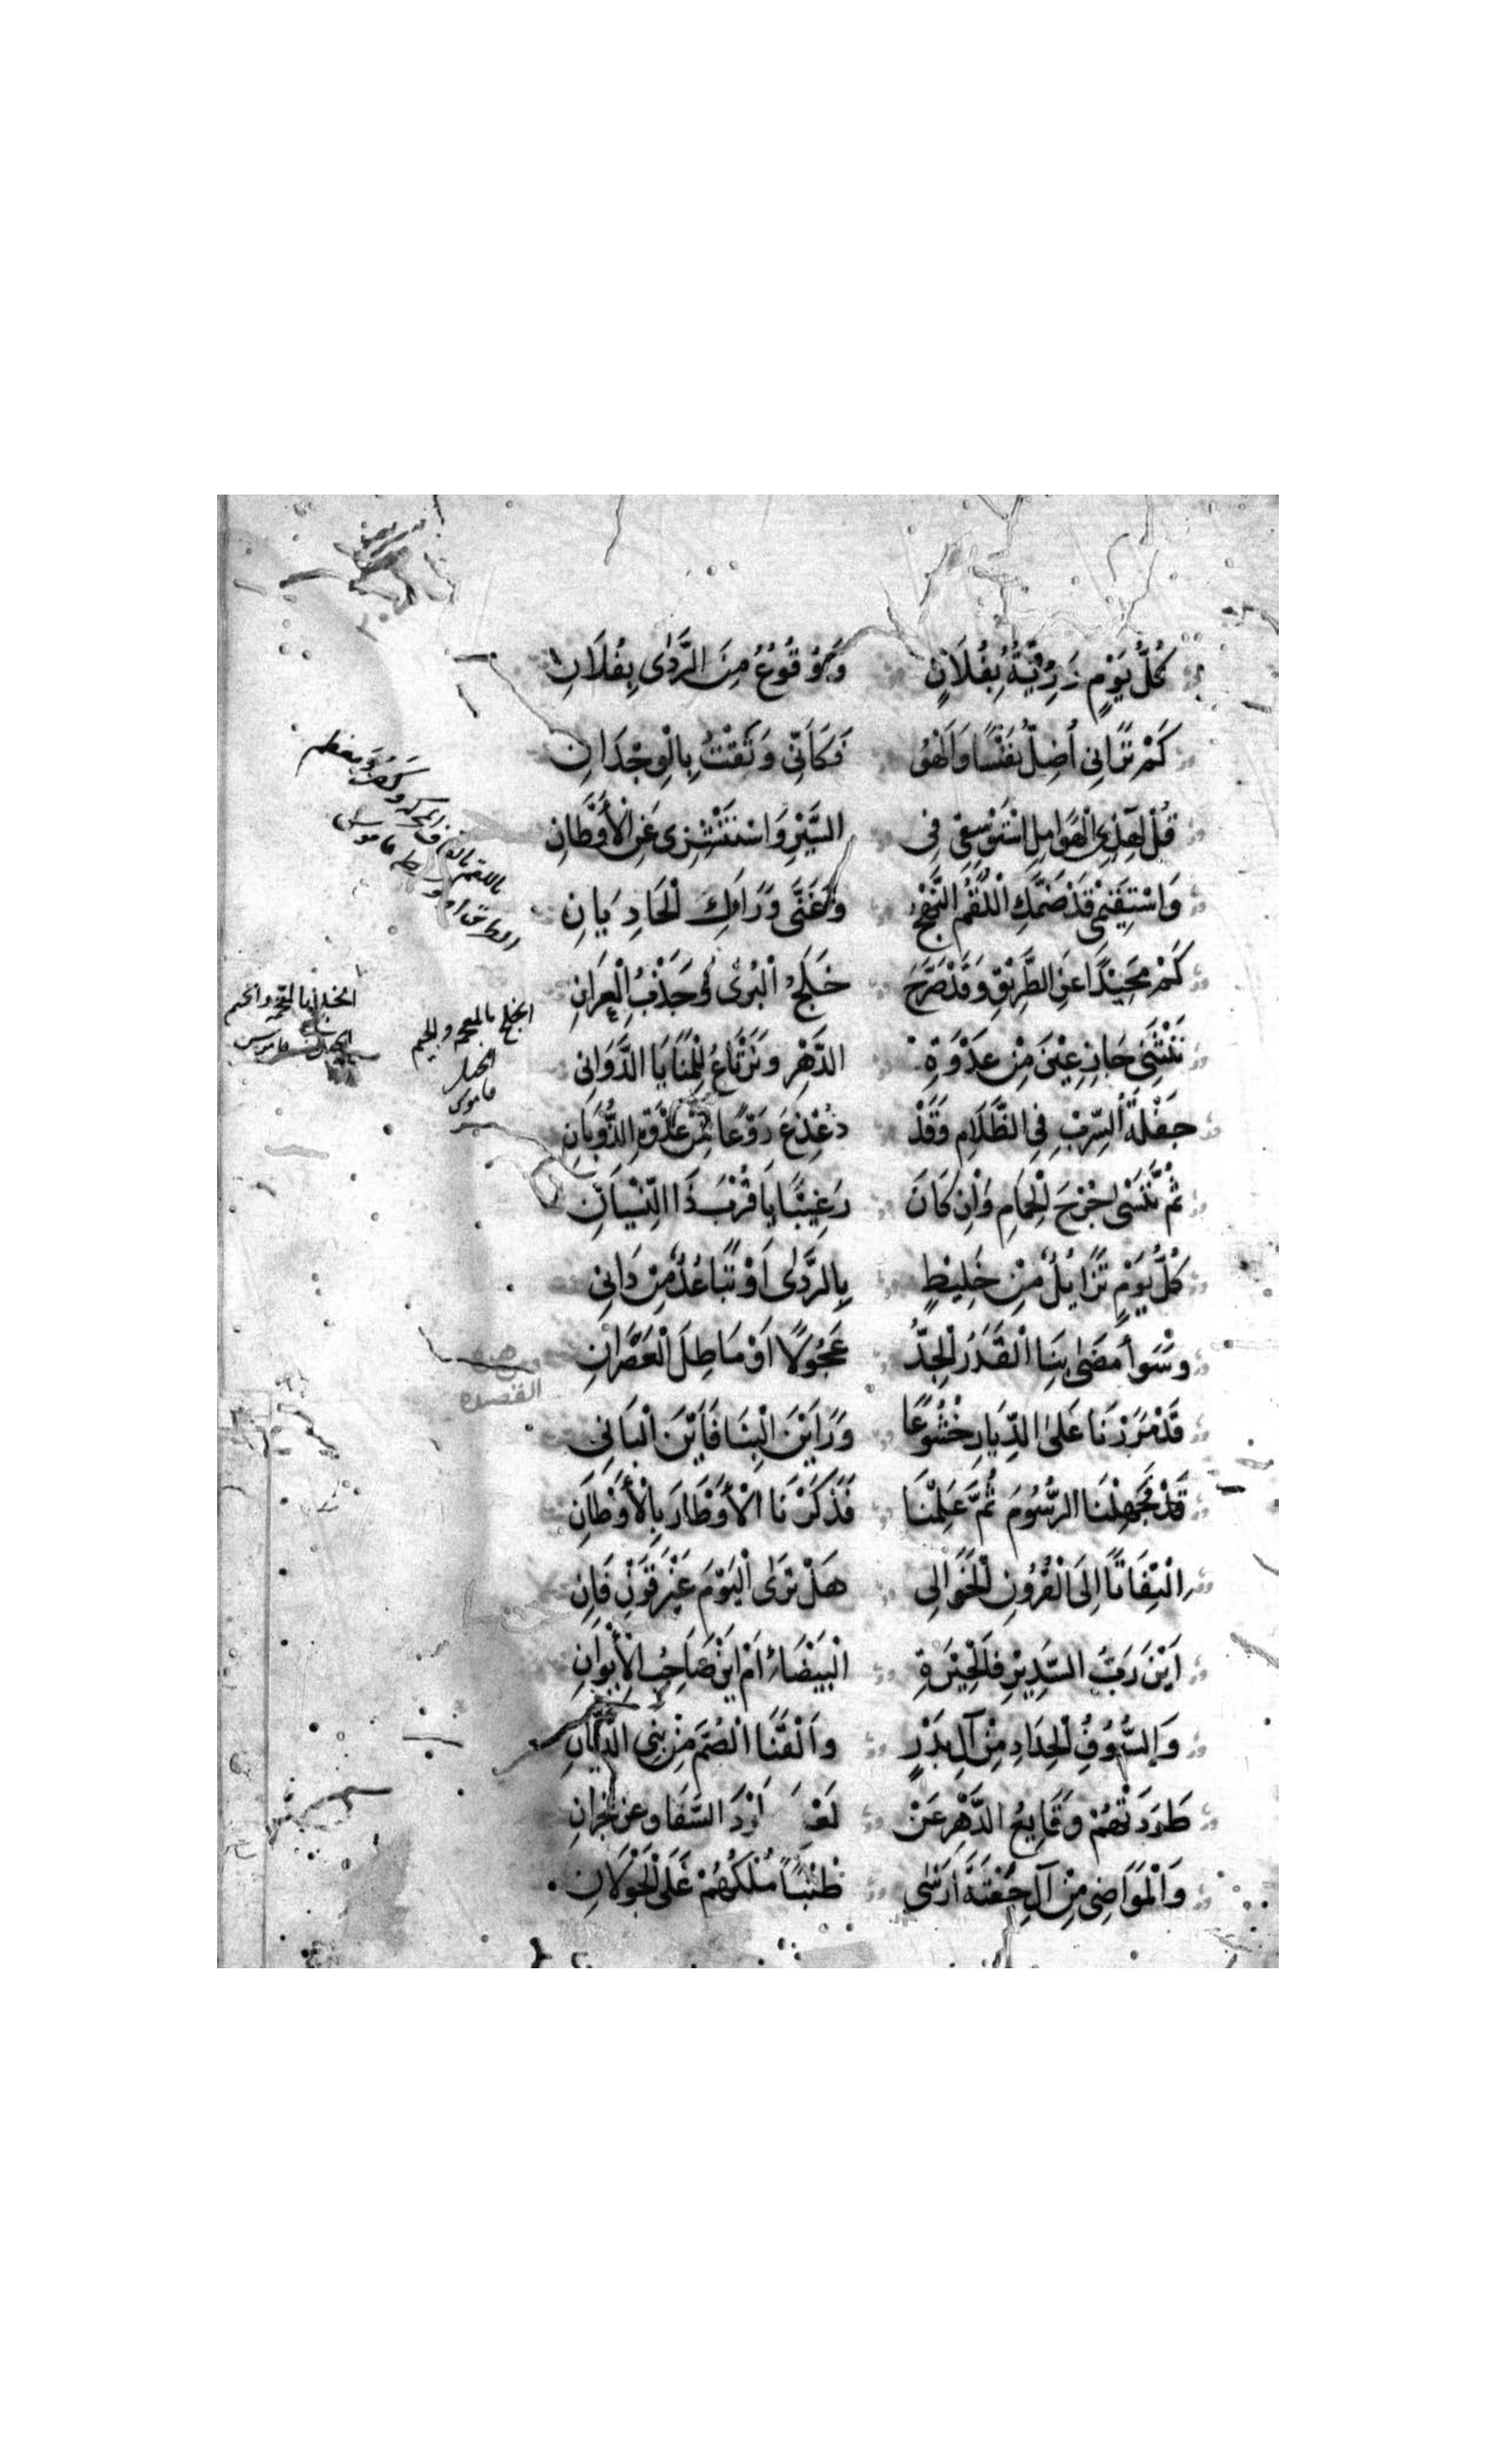 كُلُّ يَوْمٍ رَزِيَّةٌ بِفُلَانٍ وَوُقُوعٌ مِنَ الرَّدٰى بِفُلَانِ
كَمْ تَرَانِي أُضِلُّ نَفْسًا وَأَلْهُو فَكَأَنِّي وَثَقْتُ بِالْوِجْدَانِ
قُلْ لِهٰذِي الْهَوَامِلِ اسْتَوْسِقِي فِي السَّيْرِ وَاسْتَنْشِزِى عَنِ الْأَوْطَانِ
وَاسْتَقِيمِي قَدْ ضَمَّكِ اللَّقَمُ النَّهْجُ وَغَنَّى وَرَاءَكِ الْحَادِيَانِ
كَمْ مَحِيدًا عَنِ الطَّرِيقِ وَقَدْ صَرَّحَ خَلَجُ الْبُرٰى وَجَذْبُ الْعِرَانِ
نَنْثَنِي جَازِعِينَ مِنْ عَدْوَةِ الدَّهْرِ وَنَرْتَاعُ لِلْمَنَايَا الدَّوَانِي
جَفْلَةَ السِّرْبِ فِي الظَّلَامِ وَقَدْ ذُعْذِعَ رَوْعًا مِنْ عَدْوَةِ الذُّؤْبَانِ
ثُمَّ نَنْسَى جُرْحَ الْحِمَامِ وَإِنْ كَانَ رَغِيبًا يَا قُرْبَ ذَا النِّسْيَانِ
كُلَّ يَوْمٍ تَزَايُلٌ مِنْ خَلِيطٍ بِالرَّدٰى أَوْ تَبَاعُدٌ مِنْ دَانِي
وَسَوَاءٌ مَضَى بِنَا الْقَدَرُ الْجِدُّ عَجُولًا أَوْ مَاطَلَ الْعَصْرَانِ
قَدْ مَرَرْنَا عَلَى الدِّيَارِ خُشُوعًا وَرَأَيْنَ الْبِنَا فَأَيْنَ الْبَانِي
قَدْ جَهِلْنَا الرُّسُومَ ثُمَّ عَلِمْنَا فَذَكَرْنَا الْأَوْطَارَ بِالْأَوْطَانِ
الْتِفَاتًا إِلَى الْقُرُونِ الْخَوَالِي هَلْ تَرَى الْيَوْمَ غَيْرَ قَرْنٍ فَانِ
أَيْنَ رَبُّ السَّدِيرِ فَالْحِيرَةِ الْبَيْضَاءِ أَمْ أَيْنَ صَاحِبُ الْإِيوَانِ
وَالسُّيُوفُ الْحِدَادُ مِنْ آلِ بَدْرٍ وَالْقَنَا الصُّمُّ مِنْ بَنِي الدَّيَّانِ
طَرَدَتْهُمْ وَقَايِعُ الدَّهْرِ عَنْ السَّفَا وَعَنْ نَجْرَانِ
وَالْمَوَاضِي مِنْ آلِ جَفْنَةَ أَرْسَى طُنُبًا مُلْكُهُمْ عَلَى الْجَوْلَانِ
الخلج بالمعجم والجيم
الجبل
قاموس